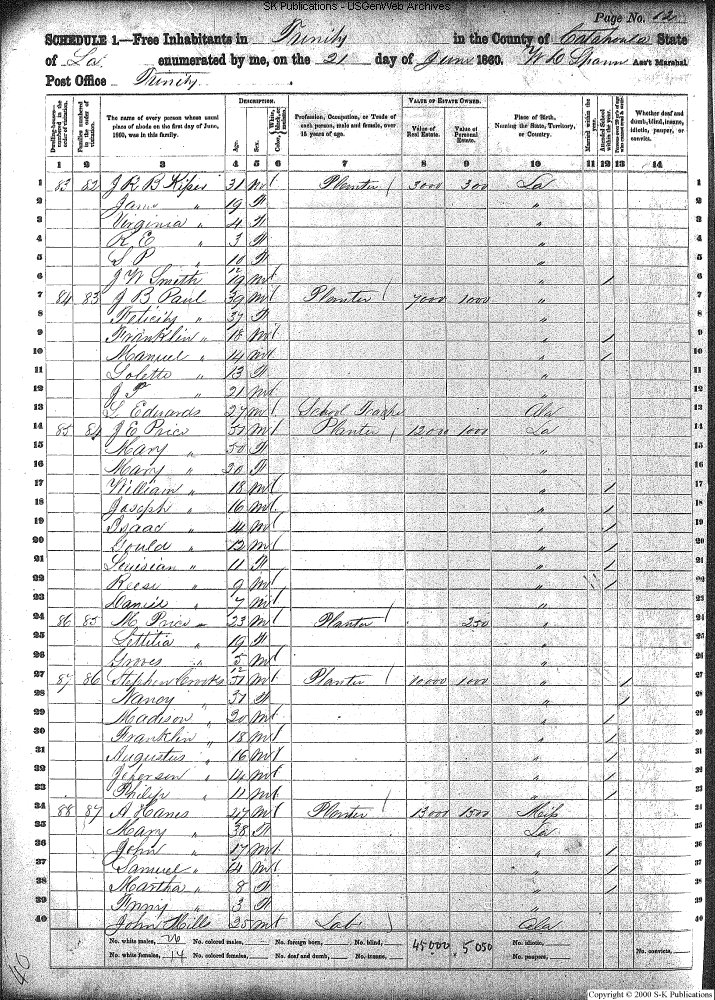 SK Publications - USGenWeb Archives
Page No. 12
SCHEDULE 1.—Free Inhabitants in Trinity in the County of Catahoula State
of La. enumerated by me, on the 21 day of June 1860. Ass't Marshal
Post Office Trinity.
Dwelling-houses—numbered in the order of visitation.
Families numbered in the order of visitation.
The name of every person whose usual place of abode on the first day of June, 1860, was in this family.
DESCRIPTION.
Age.
Sex.
Color,
Profession, Occupation, or Trade of each person, male and female, over 15 years of age.
VALUE OF ESTATE OWNED.
Value of Real Estate.
Value of Personal Estate.
Place of Birth, Naming the State, Territory, or Country.
Married within the year.
Attended School within the year.
Whether deaf and dumb, blind, insane, idiotic, pauper, or convict.
1 2 3 4 5 6 7 8 9 10 11 12 13 14
1 83 82 J R B 31 m Planter 3000 300 La 1
2 Jane " 19 f " 2
3 Virginia " 4 f " 3
4 R E " 3 f " 4
5 S P " 10/12 f " 5
6 J W Smith 19 m " / 6
7 84 83 J B Paul 39 m Planter 7000 1000 " 7
8 Felicity " 37 f " 8
9 Franklin " 18 m " / 9
10 Manuel " 14 m " / 10
11 " 13 f " 11
12 J F " 21 m " 12
13 Edwards 27 m School Teacher Ala 13
14 85 84 J E Price 51 m Planter 12000 1000 La 14
15 Mary " 50 f " 15
16 Mary " 20 f " 16
17 William " 18 m " / 17
18 Joseph " 16 m " / 18
19 Isaac " 14 m " / 19
20 Gould " 12 m " / 20
21 " 11 f " / 21
22 Reese " 9 m " / 22
23 Daniel " 7 m " 23
24 86 85 M Price 23 m Planter 250 " 24
25 Lettitia " 19 f " 25
26 Groves " 5/12 m " 26
27 87 86 Stephen Crooks 51 m Planter 10000 1000 " / 27
28 Nancy " 37 f " / 28
29 Madison " 20 m " / 29
30 Franklin " 18 m " / 30
31 Augustus " 16 m " / 31
32 Jeferson " 14 m " / 32
33 Philip " 11 m " / 33
34 88 87 A Hanes 47 m Planter 13000 1500 Miss 34
35 Mary " 38 f La 35
36 John " 17 m " / 36
37 Samuel " 14 m " / 37
38 Martha " 8 f " / 38
39 " 3 f " 39
40 John Mills 25 m Lab Ala 40
No. white males, 26 No. colored males, No. foreign born, No. blind, 45000 5050 No. idiotic, No. convicts,
No. white females, 14 No. colored females, No. deaf and dumb, No. insane, No. paupers,
Copyright © 2000 S-K Publications